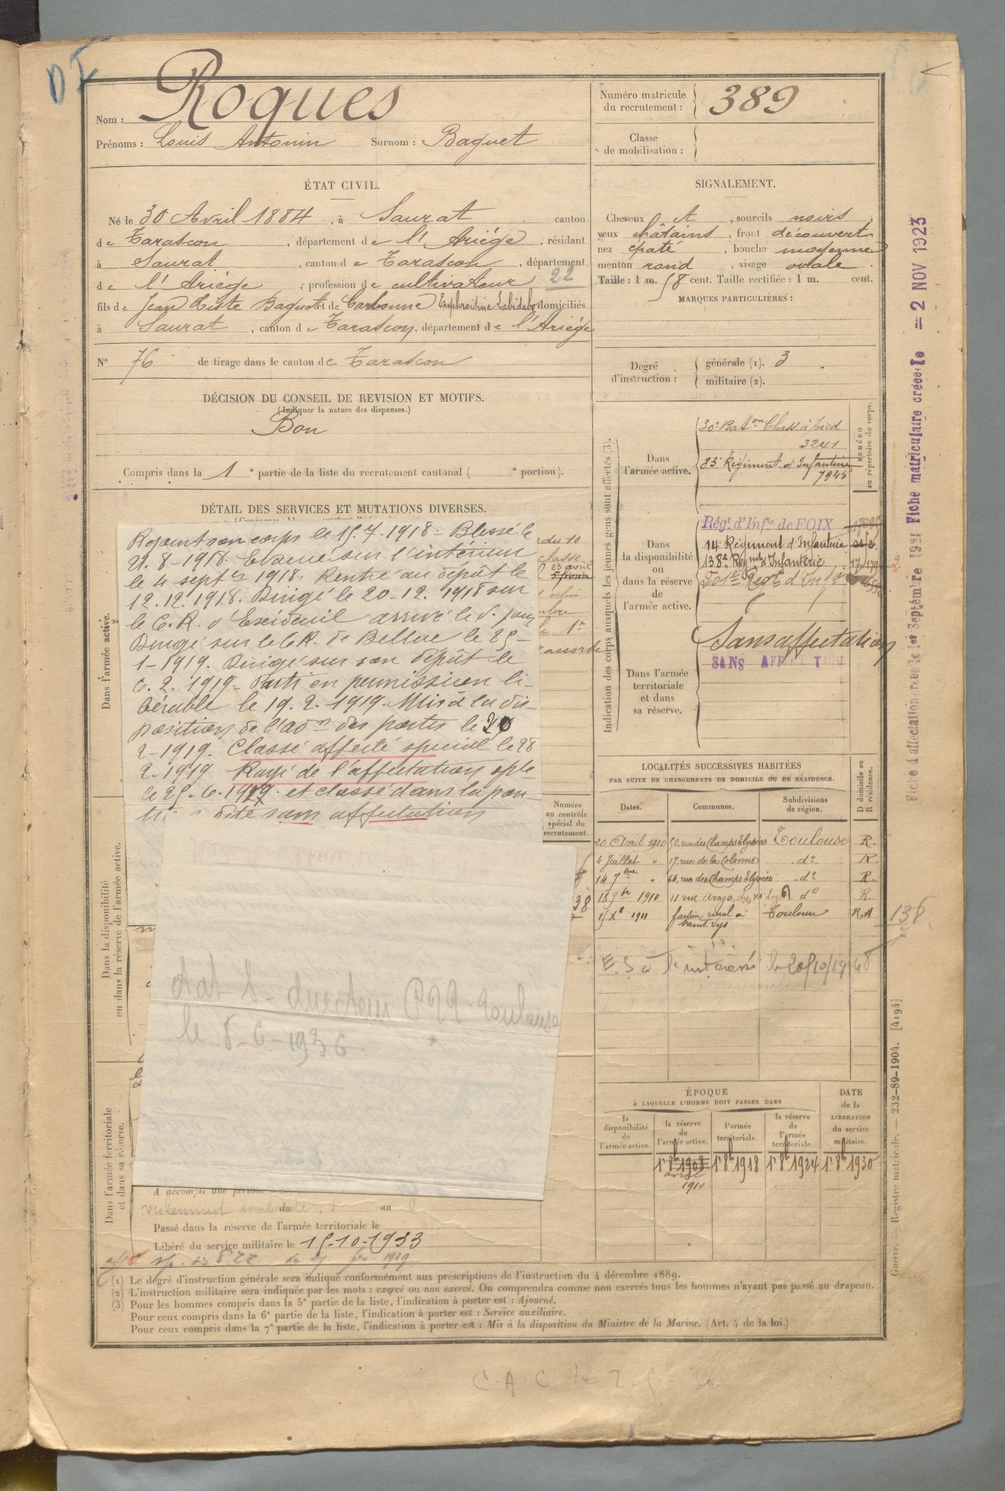 Nom : Roques
Prénoms : Louis Antonin Surnom : Baquet
Numéro matricule
du recrutement : 389
Classe
de mobilisation :
ÉTAT CIVIL.
Né le 30 Avril 1884, à Saurat canton
de Tarascon, département de l'Ariége, résidant
à Saurat, canton de Tarascon, département
de l'Ariége, profession de cultivateur 22
fils de Jean Liste Baquet et de Carbonne domiciliés
à Saurat, canton de Tarascon, département de l'Ariége
SIGNALEMENT.
Cheveux , sourcils noirs
yeux châtains, front découvert
nez épaté, bouche moyenne
menton rond, visage ovale
Taille : 1 m. 58 cent. Taille rectifiée : 1 m. cent.
MARQUES PARTICULIÈRES :
N° 76 de tirage dans le canton de Tarascon
Degré
d'instruction :
générale (1). 3
militaire (2).
DÉCISION DU CONSEIL DE REVISION ET MOTIFS.
(Indiquer la nature des dispenses.)
Bon
Compris dans la 1e partie de la liste du recrutement cantonal ( e portion).
DÉTAIL DES SERVICES ET MUTATIONS DIVERSES.
Rejoint son corps le 15.7.1918. Blessé le
21.8.1918. Evacué sur l'intérieur
le 4 septbre 1918. Rentré au dépôt le
12.12.1918. Dirigé le 20.12.1918 sur
le C.R. d'Excideuil arrivé le d. jour
Dirigé sur le C.R. de Bellac le 25-
1-1919. Dirigé sur son dépôt le
6.2.1919. Parti en permission li-
bérable le 19.2.1919. Mis à la dis-
position de l'adon des postes le 20
2-1919. Classé affecté spécial le 28
2-1919 Rayé de l'affectation sple
le 25.6.1919 et classé dans la posi-
dite sans affectation
Adt S- directeur Toulouse
le 8-6-1936
Dans l'armée active.
Dans la disponibilité
ou dans la réserve de l'armée active.
Dans l'armée territoriale
et dans sa réserve.
A accompli une période
du au
Passé dans la réserve de l'armée territoriale le
Libéré du service militaire le 15-10-1933
Indication des corps auxquels les jeunes gens sont affectés (3).
NUMÉRO
au répertoire du corps.
Dans
l'armée active.
30e Baton Chass à pied
3241
83e Régiment d'Infanterie
7945
Dans
la disponibilité
ou
dans la réserve
de
l'armée active.
Régt d'Infie de FOIX
14 Régiment d'Infanterie
135e Régmt d'Infanterie
501e Régt d'Inf
Dans l'armée
territoriale
et dans
sa réserve.
Sans affectation
SANS AFFECTATION
Numéro
au contrôle
spécial du
recrutement.
LOCALITÉS SUCCESSIVES HABITÉES
PAR SUITE DE CHANGEMENTS DE DOMICILE OU DE RÉSIDENCE.
Dates. Communes. Subdivisions
de région.
D domicile ou
R résidence.
20 Avril 1910 50, rue des Champs Elysées Toulouse R.
4 Juillet " 17, rue de la Colonne do R
14 7bre " 64, rue des Champs Elysées do R.
18 9bre 1910 11 rue Arago do R
1/Xe 1911 facteur rural à Saint Lys Toulouse R.A
136
ÉPOQUE
À LAQUELLE L'HOMME DOIT PASSER DANS
la
disponibilité
de
l'armée active.
la réserve
de
l'armée active.
l'armée
territoriale.
la réserve
de
l'armée
territoriale.
DATE
de la
LIBÉRATION
du service
militaire.
1er 8bre 1908 1er 8bre 1918 1er 8bre 1924 1er 8bre 1930
avril
1910
(1) Le degré d'instruction générale sera indiqué conformément aux prescriptions de l'instruction du 4 décembre 1889.
(2) L'instruction militaire sera indiquée par les mots : exercé ou non exercé. On comprendra comme non exercés tous les hommes n'ayant pas passé au drapeau.
(3) Pour les hommes compris dans la 5e partie de la liste, l'indication à porter est : Ajourné.
Pour ceux compris dans la 6e partie de la liste, l'indication à porter est : Service auxiliaire.
Pour ceux compris dans la 7e partie de la liste, l'indication à porter est : Mis à la disposition du Ministre de la Marine. (Art. 4 de la loi.)
Guerre. — Registre matricule. — 232-89-1904. [4194]
Fiche d'affectation créée le 1er Septembre 1921 Fiche matriculaire créée le = 2 NOV 1923